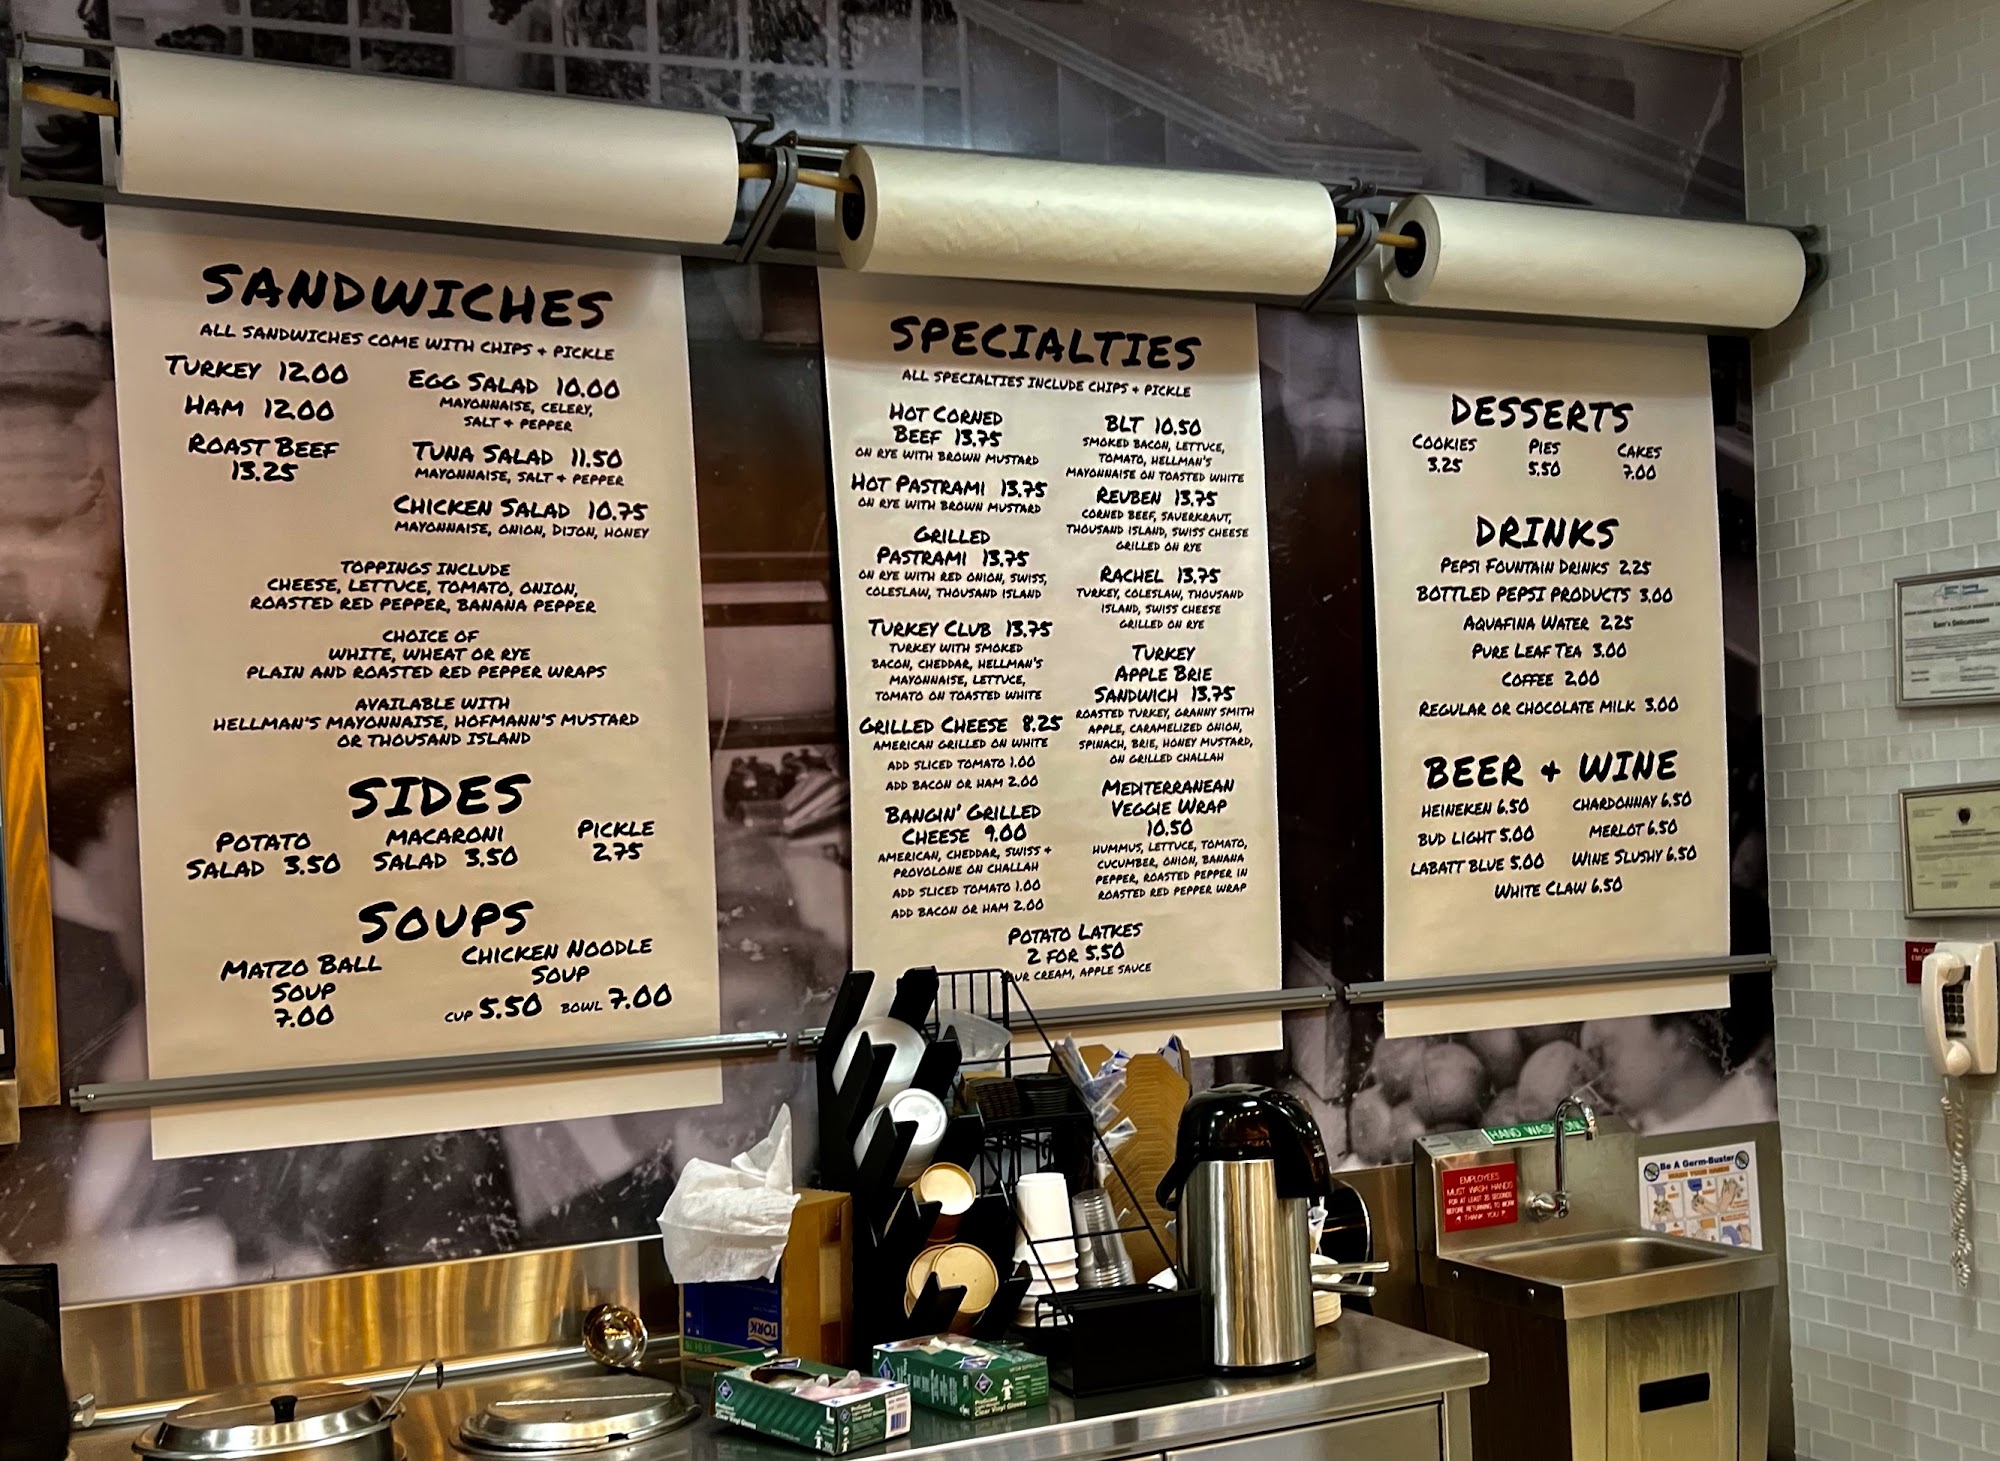 SANDWICHES
ALL SANDWICHES COME WITH CHIPS + PICKLE
TURKEY 12.00
HAM 12.00
ROAST BEEF
13.25
EGG SALAD 10.00
MAYONNAISE, CELERY,
SALT + PEPPER
TUNA SALAD 11.50
MAYONNAISE, SALT + PEPPER
CHICKEN SALAD 10.75
MAYONNAISE, ONION, DIJON, HONEY
TOPPINGS INCLUDE
CHEESE, LETTUCE, TOMATO, ONION,
ROASTED RED PEPPER, BANANA PEPPER
CHOICE OF
WHITE, WHEAT OR RYE
PLAIN AND ROASTED RED PEPPER WRAPS
AVAILABLE WITH
HELLMAN'S MAYONNAISE, HOFMANN'S MUSTARD
OR THOUSAND ISLAND
SIDES
POTATO
SALAD 3.50
MACARONI
SALAD 3.50
PICKLE
2.75
SOUPS
MATZO BALL
SOUP
7.00
CHICKEN NOODLE
SOUP
CUP 5.50 BOWL 7.00
SPECIALTIES
ALL SPECIALTIES INCLUDE CHIPS + PICKLE
HOT CORNED
BEEF 13.75
ON RYE WITH BROWN MUSTARD
HOT PASTRAMI 13.75
ON RYE WITH BROWN MUSTARD
GRILLED
PASTRAMI 13.75
ON RYE WITH RED ONION, SWISS,
COLESLAW, THOUSAND ISLAND
TURKEY CLUB 13.75
TURKEY WITH SMOKED
BACON, CHEDDAR, HELLMAN'S
MAYONNAISE, LETTUCE,
TOMATO ON TOASTED WHITE
GRILLED CHEESE 8.25
AMERICAN GRILLED ON WHITE
ADD SLICED TOMATO 1.00
ADD BACON OR HAM 2.00
BANGIN' GRILLED
CHEESE 9.00
AMERICAN, CHEDDAR, SWISS +
PROVOLONE ON CHALLAH
ADD SLICED TOMATO 1.00
ADD BACON OR HAM 2.00
BLT 10.50
SMOKED BACON, LETTUCE,
TOMATO, HELLMAN'S
MAYONNAISE ON TOASTED WHITE
REUBEN 13.75
CORNED BEEF, SAUERKRAUT,
THOUSAND ISLAND, SWISS CHEESE
GRILLED ON RYE
RACHEL 13.75
TURKEY, COLESLAW, THOUSAND
ISLAND, SWISS CHEESE
GRILLED ON RYE
TURKEY
APPLE BRIE
SANDWICH 13.75
ROASTED TURKEY, GRANNY SMITH
APPLE, CARAMELIZED ONION,
SPINACH, BRIE, HONEY MUSTARD,
ON GRILLED CHALLAH
MEDITERRANEAN
VEGGIE WRAP
10.50
HUMMUS, LETTUCE, TOMATO,
CUCUMBER, ONION, BANANA
PEPPER, ROASTED PEPPER IN
ROASTED RED PEPPER WRAP
POTATO LATKES
2 FOR 5.50
OUR CREAM, APPLE SAUCE
DESSERTS
COOKIES
3.25
PIES
5.50
CAKES
7.00
DRINKS
PEPSI FOUNTAIN DRINKS 2.25
BOTTLED PEPSI PRODUCTS 3.00
AQUAFINA WATER 2.25
PURE LEAF TEA 3.00
COFFEE 2.00
REGULAR OR CHOCOLATE MILK 3.00
BEER + WINE
HEINEKEN 6.50
BUD LIGHT 5.00
LABATT BLUE 5.00
CHARDONNAY 6.50
MERLOT 6.50
WINE SLUSHY 6.50
WHITE CLAW 6.50
HAND WASH ONLY
EMPLOYEES
MUST WASH HANDS
FOR AT LEAST 20 SECONDS
BEFORE RETURNING TO WORK
THANK YOU
Be A Germ-Buster
WASH YOUR HANDS
TORK
Clear Vinyl Gloves
Clear Vinyl Gloves